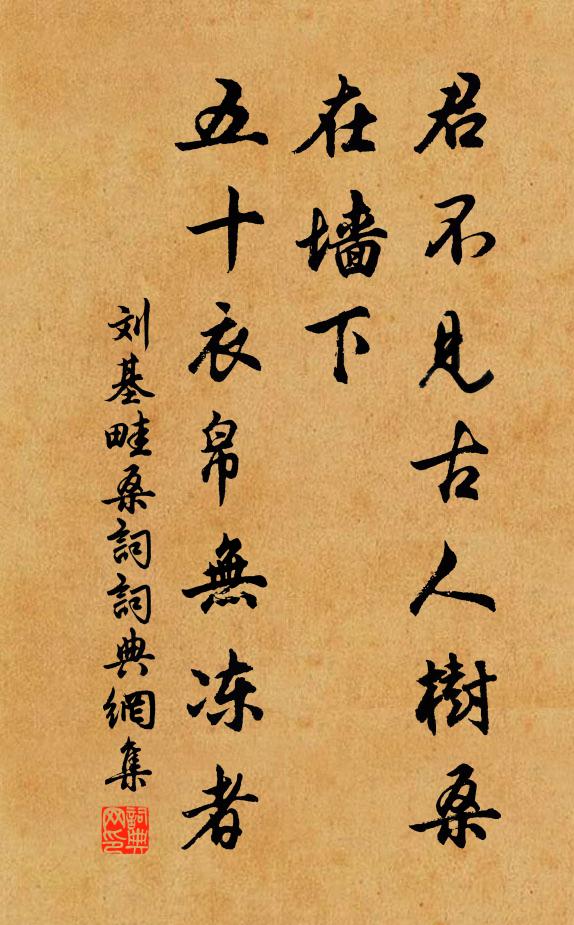 君不见古人樹桑
在墙下
五十衣帛無冻者
刘基畦桑詞詞典網集
詞典网印